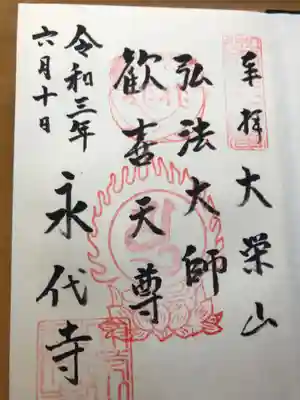 奉拝 大栄山
弘法大師
歓喜天尊
永代寺
令和三年
六月十日